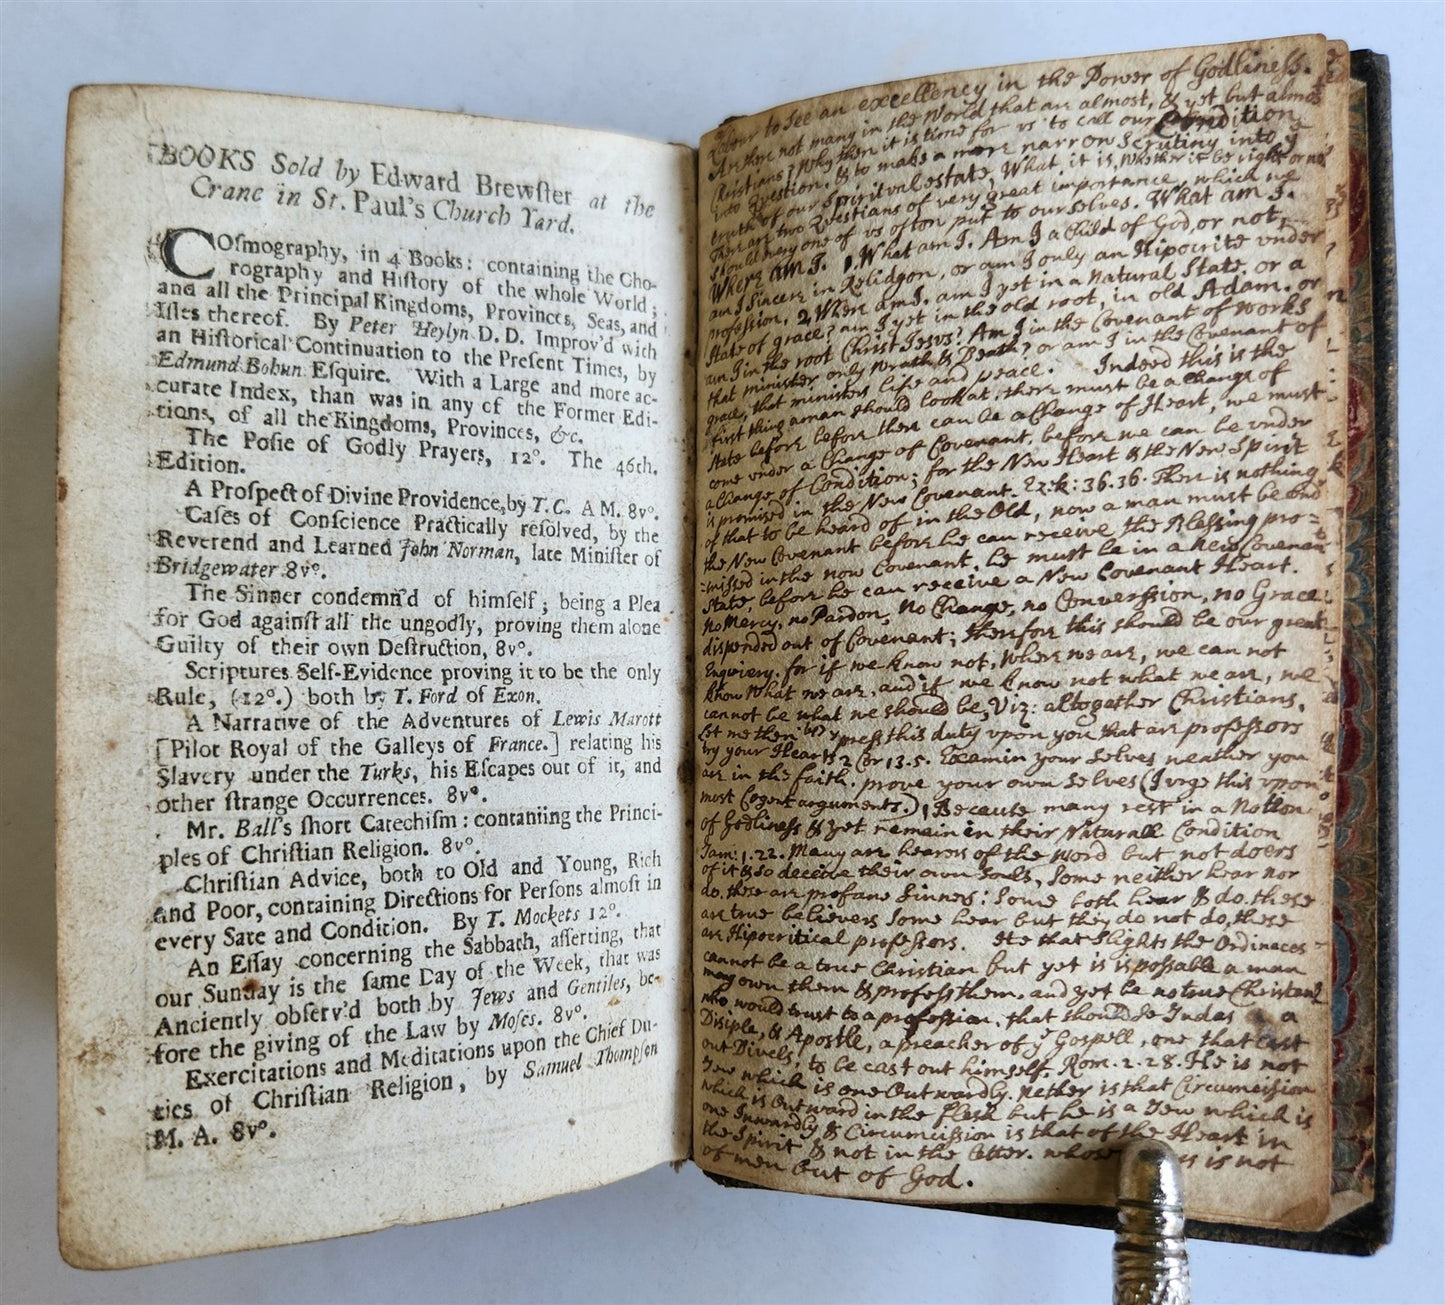 BOOKS Sold by Edward Brewſter at the
Crane in St. Paul's Church Yard.
COſmography, in 4 Books: containing the Cho-
rography and Hiſtory of the whole World;
and all the Principal Kingdoms, Provinces, Seas, and
Iſles thereof. By Peter Heylyn D. D. Improv'd with
an Hiſtorical Continuation to the Preſent Times, by
Edmund Bohun Eſquire. With a Large and more ac-
curate Index, than was in any of the Former Edi-
tions, of all the Kingdoms, Provinces, &c.
The Poſie of Godly Prayers, 12°. The 46th.
Edition.
A Proſpect of Divine Providence, by T. C. A M. 8vº.
Caſes of Conſcience Practically reſolved, by the
Reverend and Learned John Norman, late Miniſter of
Bridgewater 8vº.
The Sinner condemn'd of himſelf; being a Plea
for God againſt all the ungodly, proving them alone
Guilty of their own Deſtruction, 8vº.
Scriptures Self-Evidence proving it to be the only
Rule, (12°.) both by T. Ford of Exon.
A Narrative of the Adventures of Lewis Marott
[Pilot Royal of the Galleys of France.] relating his
Slavery under the Turks, his Eſcapes out of it, and
other ſtrange Occurrences. 8vº.
Mr. Ball's ſhort Catechiſm: contanting the Princi-
ples of Chriſtian Religion. 8vº.
Chriſtian Advice, both to Old and Young, Rich
and Poor, containing Directions for Perſons almoſt in
every Sate and Condition. By T. Mockets 12°.
An Eſſay concerning the Sabbath, aſſerting, that
our Sunday is the ſame Day of the Week, that was
Anciently obſerv'd both by Jews and Gentiles, be-
fore the giving of the Law by Moſes. 8vº.
Exercitations and Meditations upon the Chief Du-
ties of Chriſtian Religion, by Samuel Thompſon
M. A. 8vº.
Labour to See an excellency in the Power of Godliness.
Are there not many in the World that are almost, & yet but almost
Christians? why then it is time for us to call our Condition
into Question, & to make a more narrow Scrutiny into y
truth of our Spiritual estate, What it is, whether it be right or no
There are two Questians of very great importance, which we
should every one of us often put to ourselves. What am I.
Where am I. 1. What am I. Am I a Child of God, or not,
am I Sincere in Relidgon, or am I only an Hipocrite under
profession, 2, Where am I. am I yet in a Natural State. or a
State of grace? am I yet in the old root, in old Adam. or
am I in the root Christ Jesus? Am I in the Covenant of Works
that minister only wrath & Death? or am I in the Covenant of
grace, that ministers life and peace. Indeed this is the
first thing a man should look at, there must be a Change of
State before before there can be a Change of Heart, we must
come under a Change of Covenant, before we can be under
a Change of Condition; for the New Heart & the New Spirit
is promised in the New Covenant. Ezek: 36.36. There is nothing
of that to be heard of in the Old, now a man must be and
the New Covenant before he can receive the Blessing pro=
=missed in the now Covenant, he must be in a New Covenan
State, before he can receive a New Covenant Heart.
No Mercy, no Pardon, no Change, no Converssion, no Grace
dispended out of Covenant; therefore this should be our great
Enquiery. for if we know not, Where we are, we can not
know What we are, and if we know not what we are, we
cannot be what we should be, Viz: altogether Christians.
Let me then press this duty upon you that are professors
try your Hearts 2 Cor 13.5. Examin your Selves neather you
are in the faith. prove your own Selves (I urge this upon
most Cogent arguments.) 1 Because many rest in a Notion
of Godliness & yet remain in their Naturall Condition
Jam: 1.22. Many are hearers of the word but not doers
of it & so deceive their own Souls, Some neither hear nor
do. these are profane Sinners: Some both hear & do. these
are true believers Some hear but they do not do, these
are Hipocritical professors. He that Slights the Ordinaces
cannot be a true Christian but yet is is possable a man
may own them & profess them. and yet be no true Christan
who would trust to a profession, that should se Judas a
Disiple, & Apostle, a preacher of yᵉ Gospell, one that cast
out Divels, to be cast out himself. Rom. 2. 28. He is not
Jew which is one Outwardly. nether is that Circumcision
which is Outward in the flesh but he is a Jew which is
one Inwardly & Circumcission is that of the Heart in
the Spirit & not in the letter. whose is not
of men but of God.